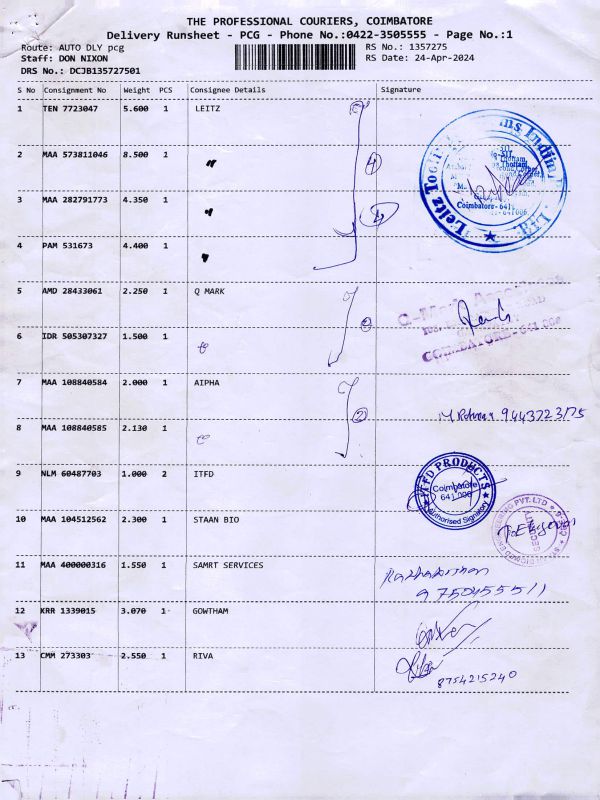 THE PROFESSIONAL COURIERS, COIMBATORE
Delivery Runsheet - PCG - Phone No.:0422-3505555 - Page No.:1
Route: AUTO DLY pcg RS No.: 1357275
Staff: DON NIXON RS Date: 24-Apr-2024
DRS No.: DCJB135727501
S No Consignment No Weight PCS Consignee Details Signature
1 TEN 7723047 5.600 1 LEITZ
2 MAA 573811046 8.500 1 "
4
3 MAA 282791773 4.350 1 "
4 PAM 531673 4.400 1 "
Coimbatore - 641
641006.
5 AMD 28433061 2.250 1 Q MARK
6 IDR 505307327 1.500 1
COIMBATORE - 641 006
7 MAA 108840584 2.000 1 AIPHA
2
8 MAA 108840585 2.130 1
9 NLM 60487703 1.000 2 ITFD
ITFD PRODUCTS
Coimbatore
641 006
Authorised Signatory
10 MAA 104512562 2.300 1 STAAN BIO
11 MAA 400000316 1.550 1 SAMRT SERVICES
12 KRR 1339015 3.070 1 GOWTHAM
13 CMM 273303 2.550 1 RIVA
8754215240